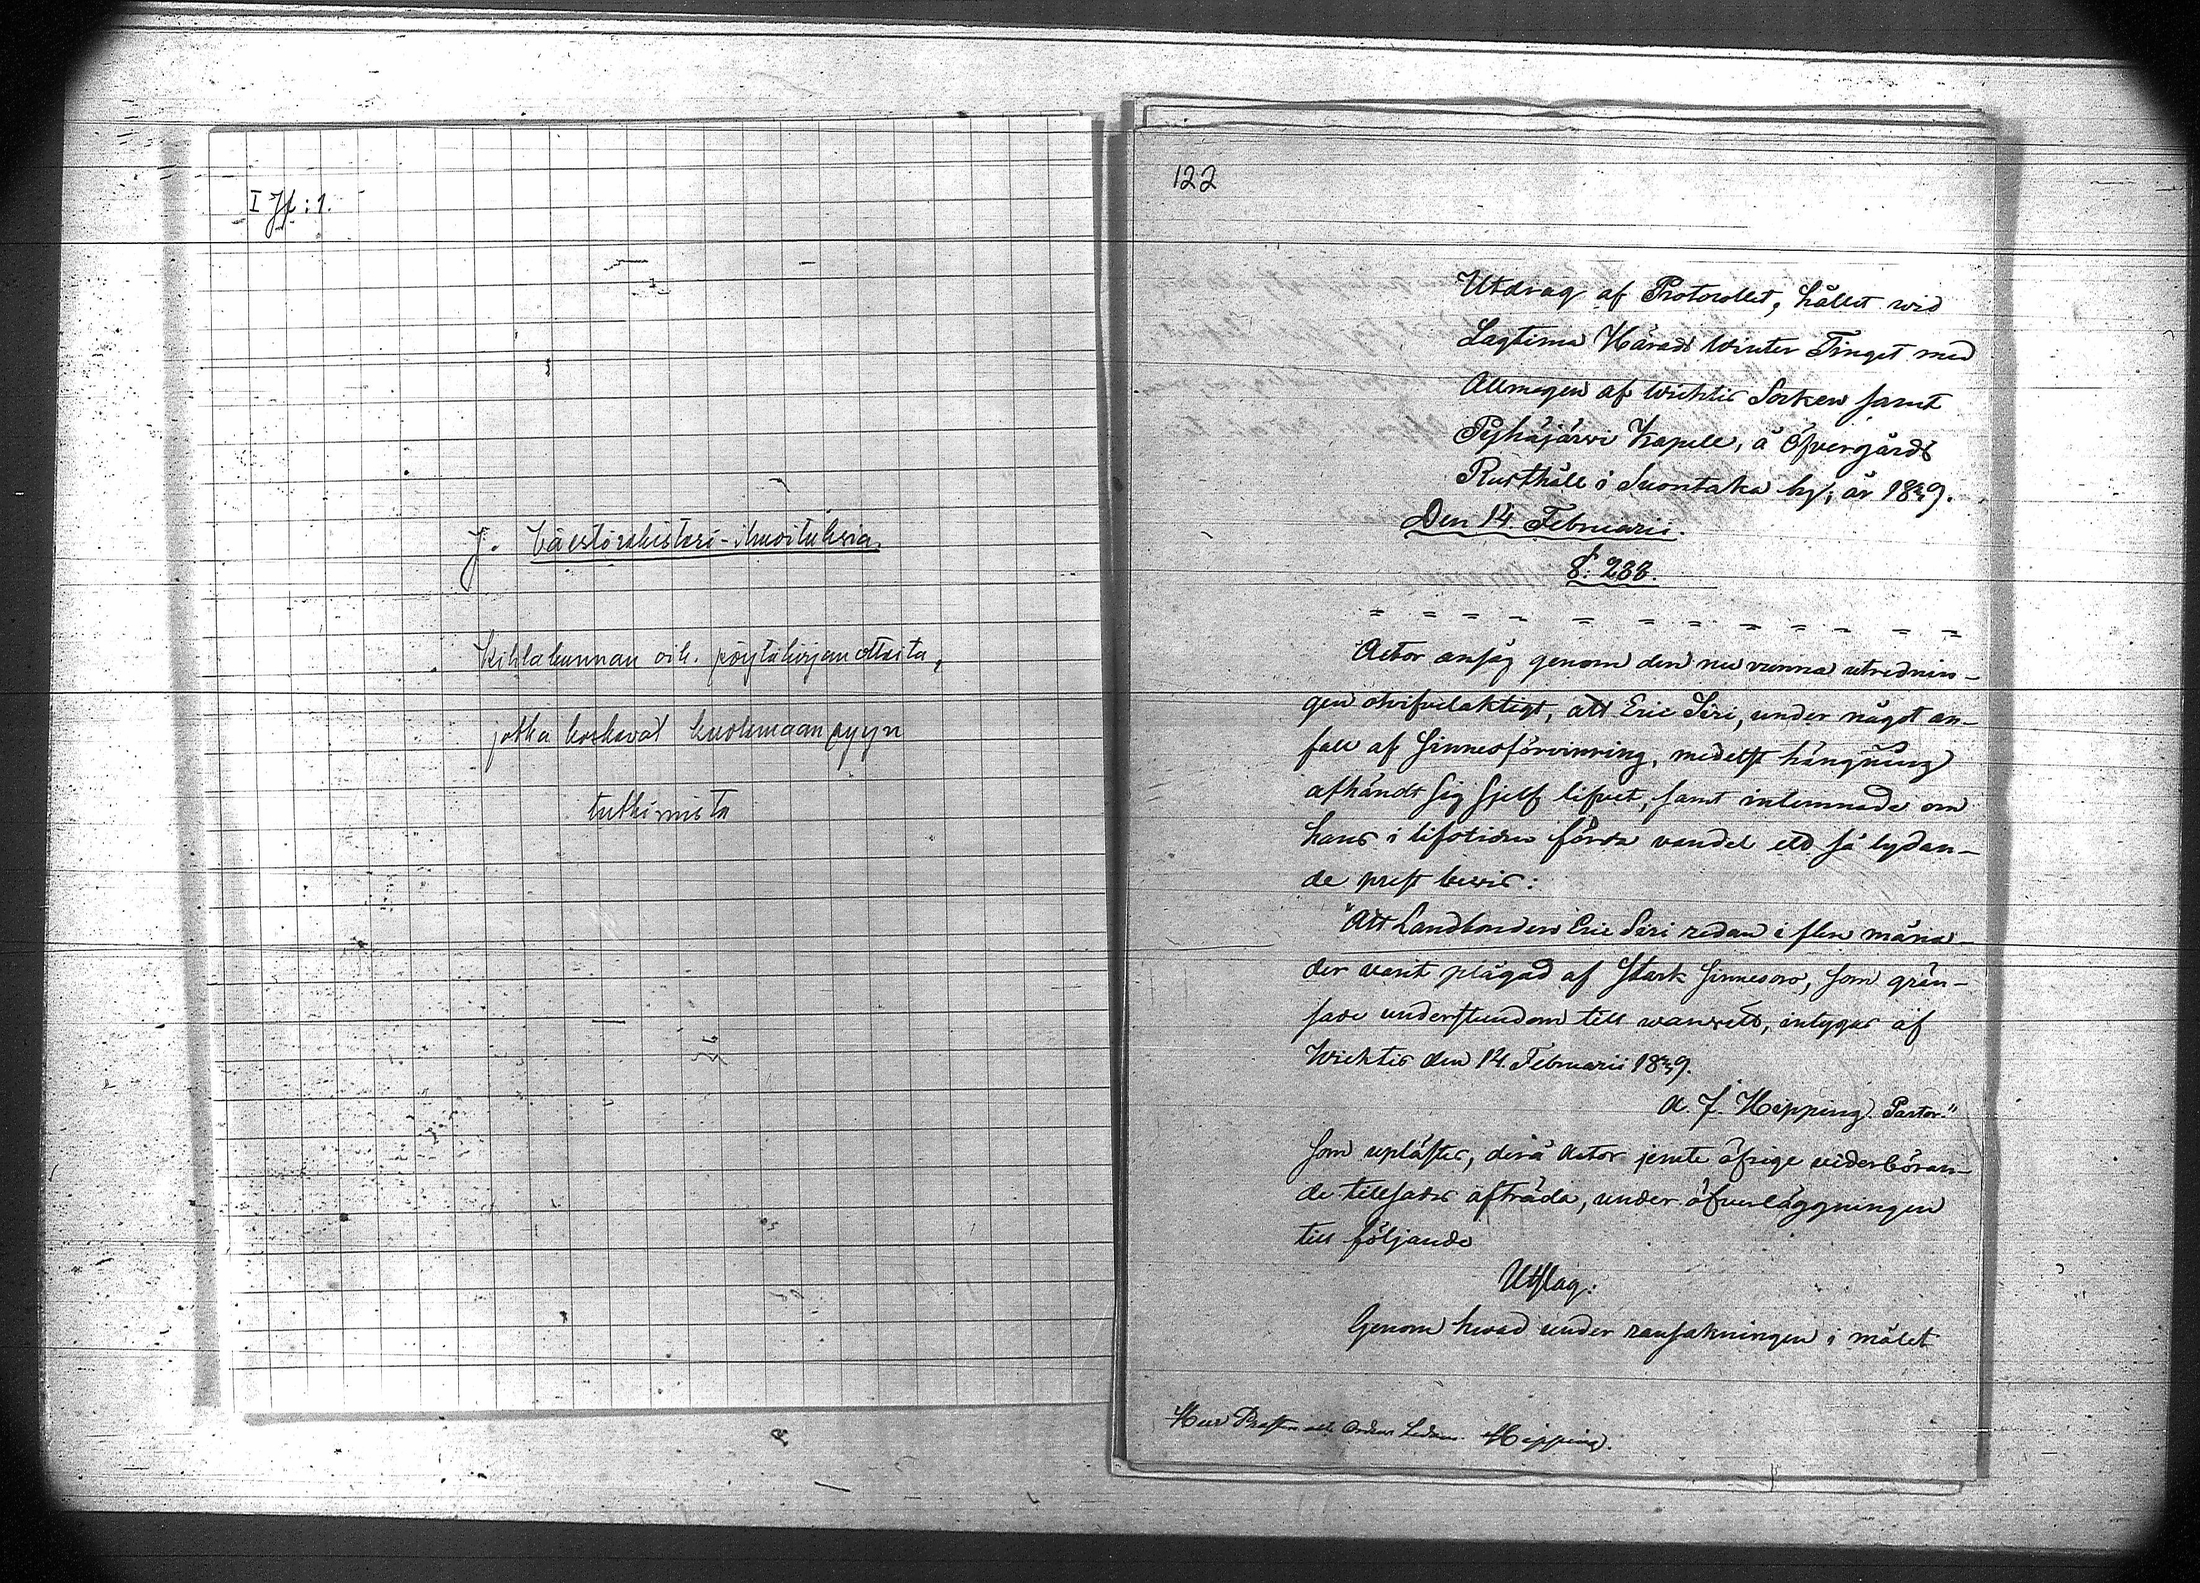 I Jf : 1.
J. Väestörekisteri-ilmoituksia
Kihlakunnan oik. pöytäkirjanotteita,
jotka koskevat kuolemaansyyn
tutkimista
122
Utdrag af Protocollet, hållet wid
Lagtima Härads Winter Tinget med
Allmogen af Wichtis Socken samt
Pyhäjärwi Kapell, å Öfvergårds
Rusthåll i Suontaka by, år 1839.
Den 14 Februarii.
§. 288.
Actor ansåg genom den nu vunna utrednin-
gen otvifvelaktigt, att Eric Siri, under något an-
fall af sinnesförvirring, medelst hängning
afhändt sig sjelf lifvet, samt inlemnade om
hans i lifstiden förda vandel ett så lydan-
de prest bevis:
"Att Landbonden Eric Siri redan i flere måna-
der varit plågad af stark sinnesoro, som grän-
sade understundom till wanvett, intygas af
Wichtis den 14. Februarii 1839.
A. J. Hipping Pastor."
som uplästes, derå Actor jemte öfrige vederböran-
de tillsades afträda, under öfverläggningen
till följande
Utslag:
Genom hvad under ransakningen i målet
Herr Prosten och Hipping.